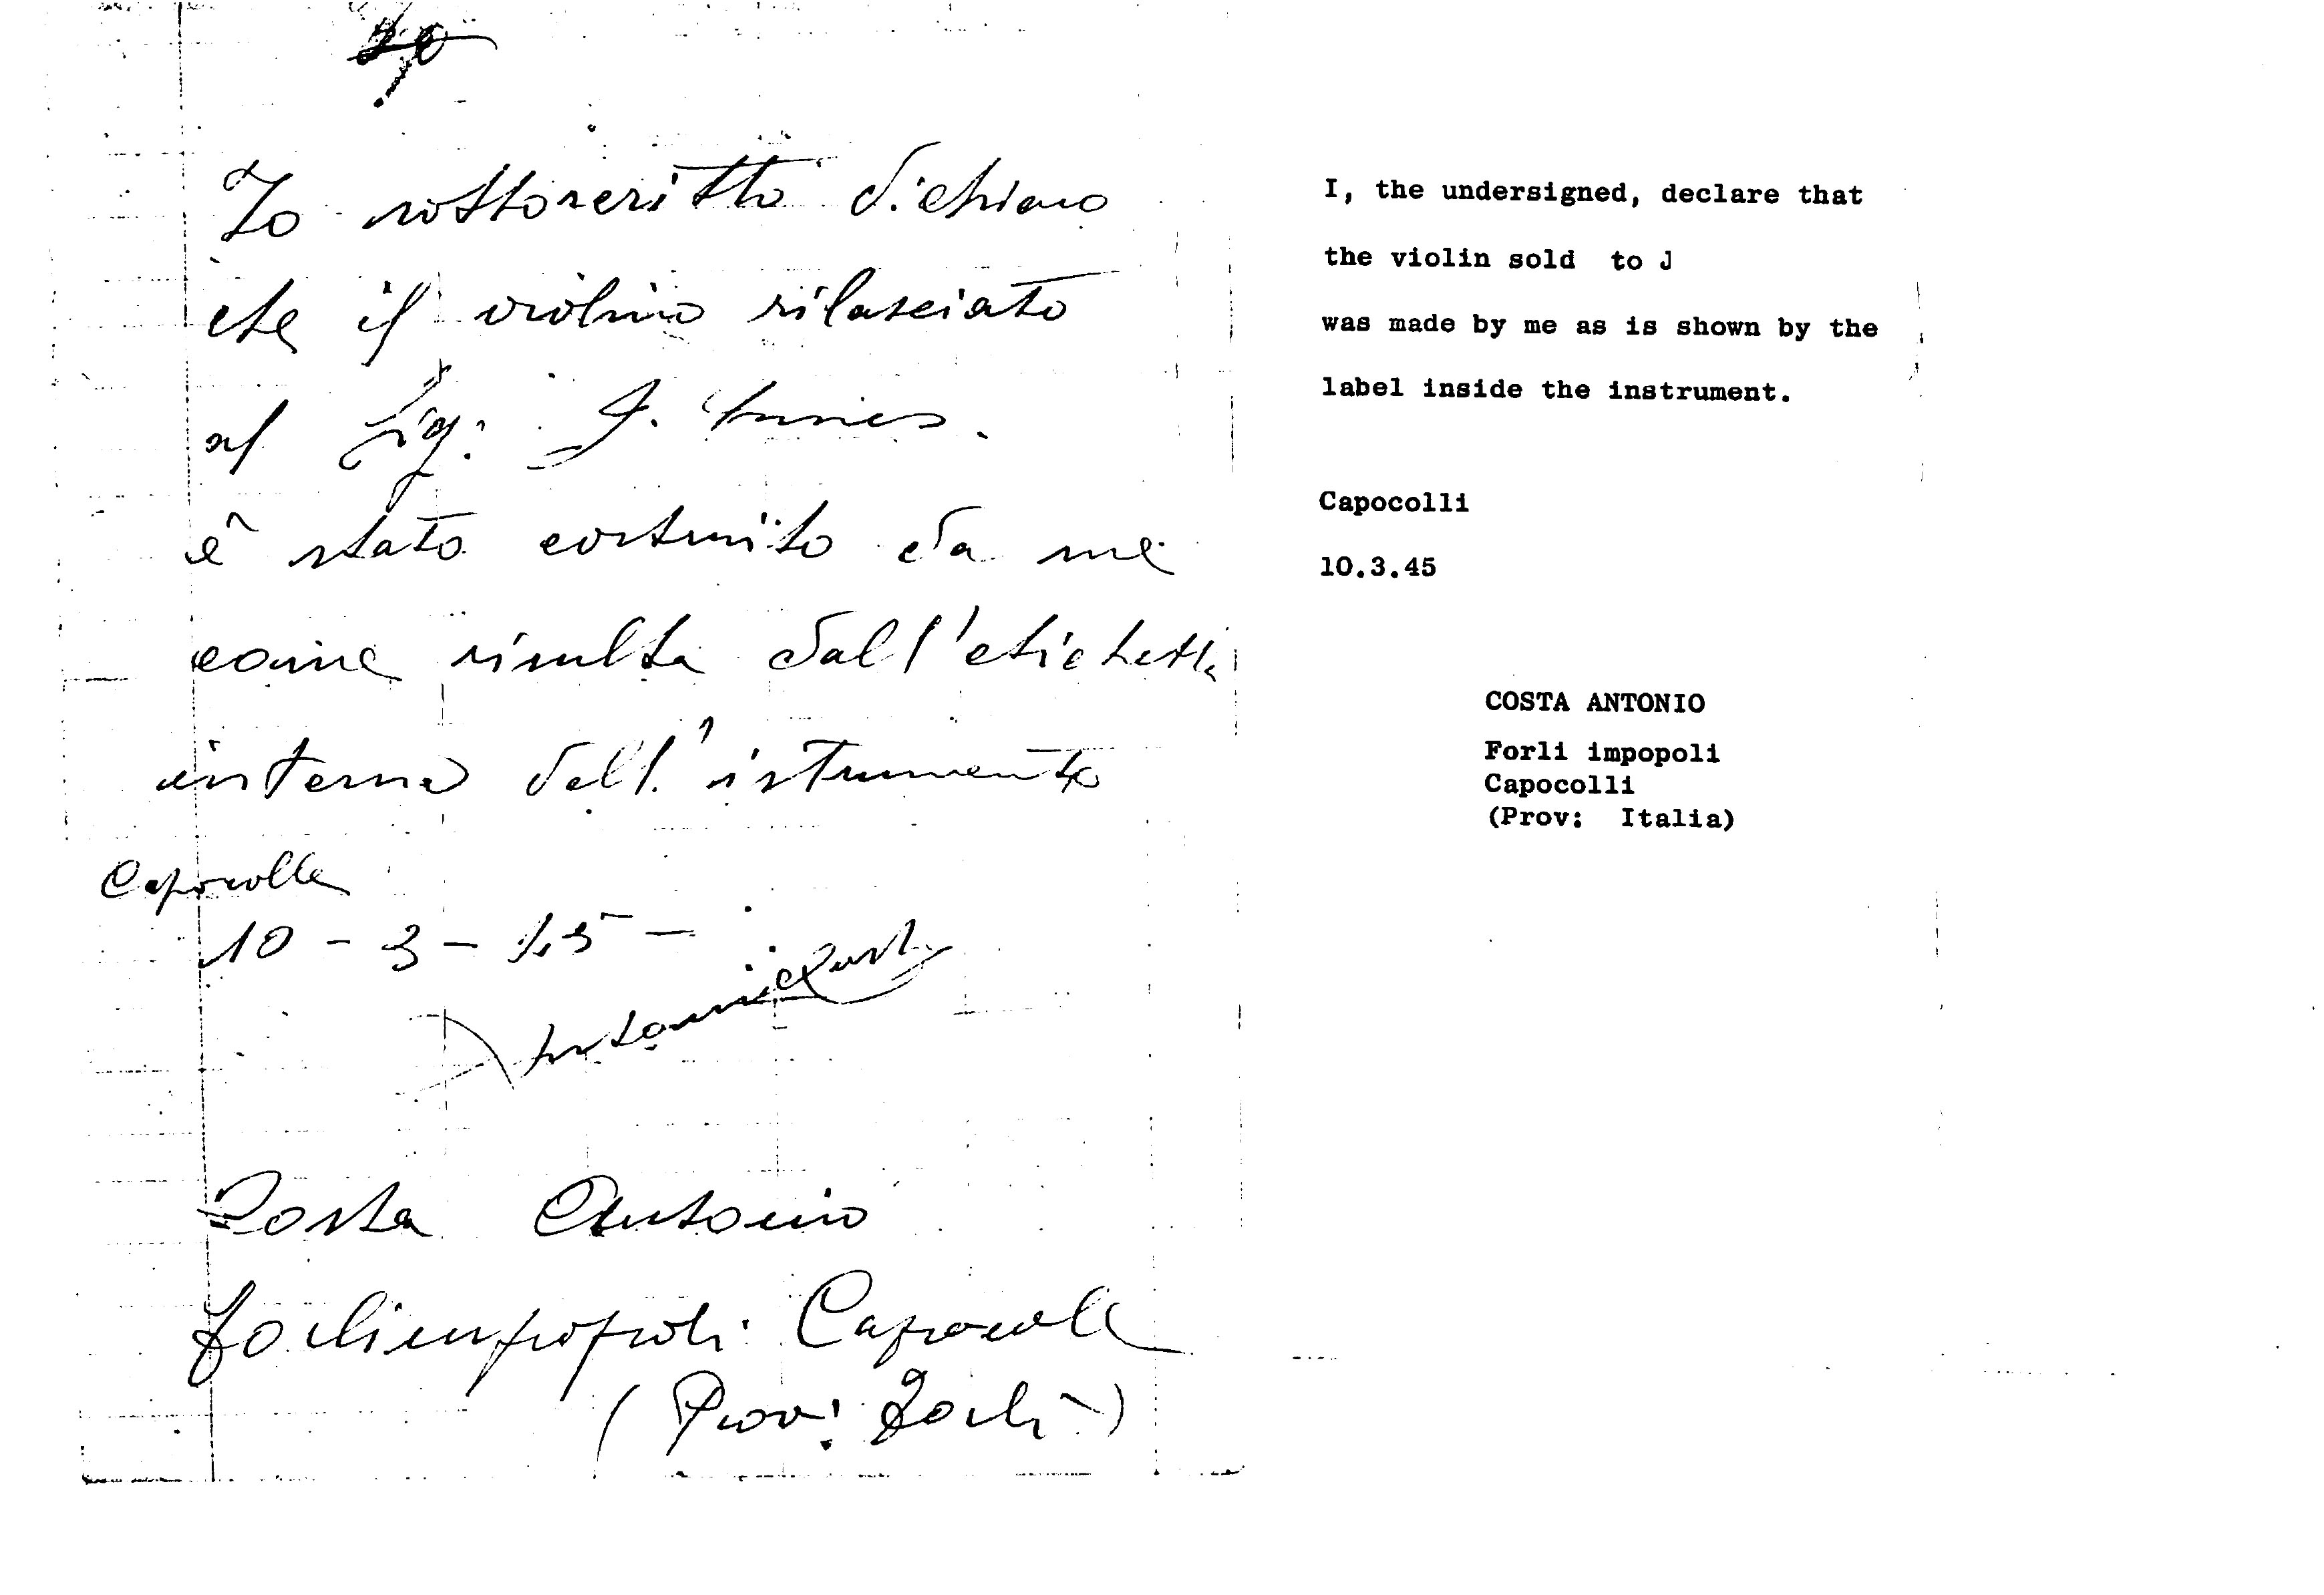 Io sottoscritto dichiaro
che il violino rilasciato
al Sig: J.
è stato costruito da me
come risulta dall'etichetta
interna dell'istrumento
Capocolle
10-3-45-
Antonio Costa
Costa Antonio
Forlimpopoli Capocolle
(Prov: Forlì)
I, the undersigned, declare that
the violin sold to J
was made by me as is shown by the
label inside the instrument.
Capocolli
10.3.45
COSTA ANTONIO
Forli impopoli
Capocolli
(Prov: Italia)